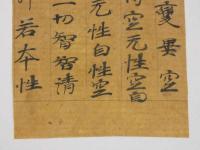 變異空
得空无性空自
无性自性空
一切智智清
若本性